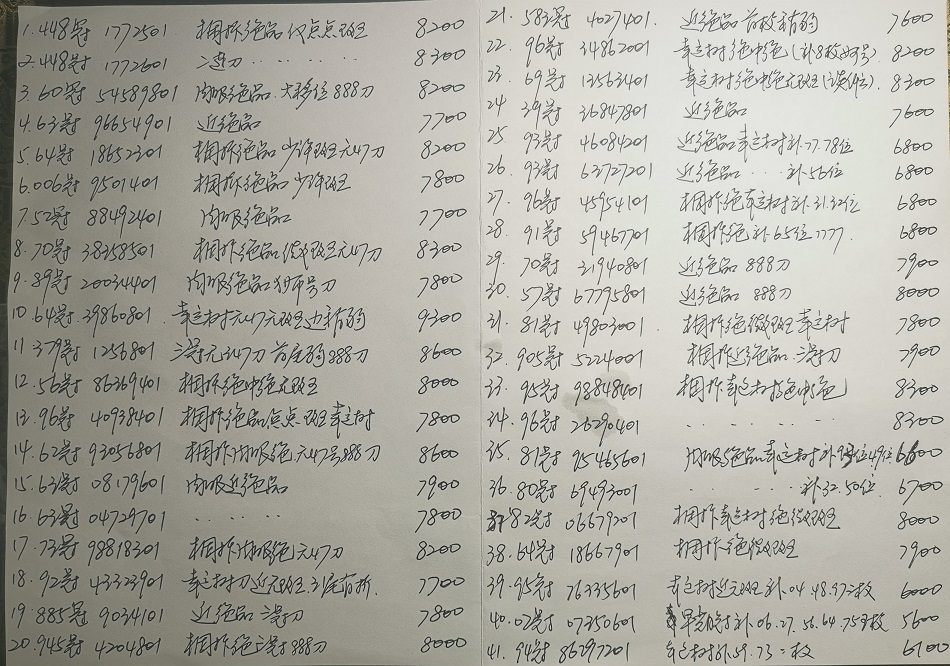 1. 448冠 1772501 相拆绝品 仅点点斑 8200
2. 448冠 1772601 二连刀 ‥ ‥ ‥ ‥ 8300
3. 60冠 54589801 肉眼绝品 888刀 8200
4. 63冠 96654901 近绝品 7700
5. 64冠 18652301 相拆绝品 少许斑无47刀 8200
6. 006冠 9501401 相拆绝品 少许斑 7800
7. 52冠 88492401 肉眼绝品 7700
8. 70冠 38258501 相拆绝品 斑无47刀 8300
9. 89冠 20034401 肉眼绝品 号刀 7800
10. 64冠 39860801 幸运树无47无斑 边有弱 9300
11 379冠 1256801 三冠无347刀 首尾弱888刀 8600
12. 56冠 86269401 相拆绝中绝无斑 8000
13. 96冠 40938401 相拆绝品 点斑 幸运树 7800
14. 62冠 93056801 相拆肉眼绝.无47号888刀 8600
15. 63冠 08179601 肉眼近绝品 7900
16. 63冠 04729701 ‥ ‥ ‥ 7800
17. 73冠 98818301 相拆肉眼绝.无47刀 8200
18. 92冠 43323901 幸运树刀近无斑.尾有折. 7700
19. 885冠 9034101 近绝品 三冠刀 7800
20. 945冠 4204801 相拆绝三冠888刀 8000
21. 583冠 4027401. 近绝品 首枚有弱 7600
22. 96冠 34862001 幸运树绝中绝(补8枚号) 8200
23. 69冠 13563401 幸运树绝中绝无斑 8300
24 39冠 36847801 近绝品 7600
25. 93冠 46084201 近绝品 幸运树补.77.78位 6800
26. 93冠 63727201 近绝品 ‥ ‥ 补56位 6800
27. 96冠 45954101 相拆绝幸运树补.31.32位 6800
28. 91冠 59467701 相拆绝补65位7777. 6800
29. 70冠 31940801 近绝品 888刀 7900
30. 57冠 67795801 近绝品 888刀 8000
31. 81冠 49803001 相拆绝微斑 幸运树 7800
32. 905冠 5224001 相拆近绝品.三冠刀 7900
33. 95冠 98848401 相拆幸运树绝中绝 8300
34. 96冠 26290401 ‥ ‥ ‥ 8300
35. 81冠 95465601 肉眼绝品幸运树补 位49位 6600
36. 80冠 69493001 ‥ ‥ ‥ 补32.50位 6700
37 82冠 06679201 相拆幸运树绝微斑 8000
38. 64冠 18667901 相拆绝微斑 7900
39. 95冠 76335601 幸运树近无斑补.04.48.97三枚 6000
40. 02冠 07350601 补.06.27.56.64.75 枚 5600
41. 94冠 86297201 幸运树补59.73二枚 6100